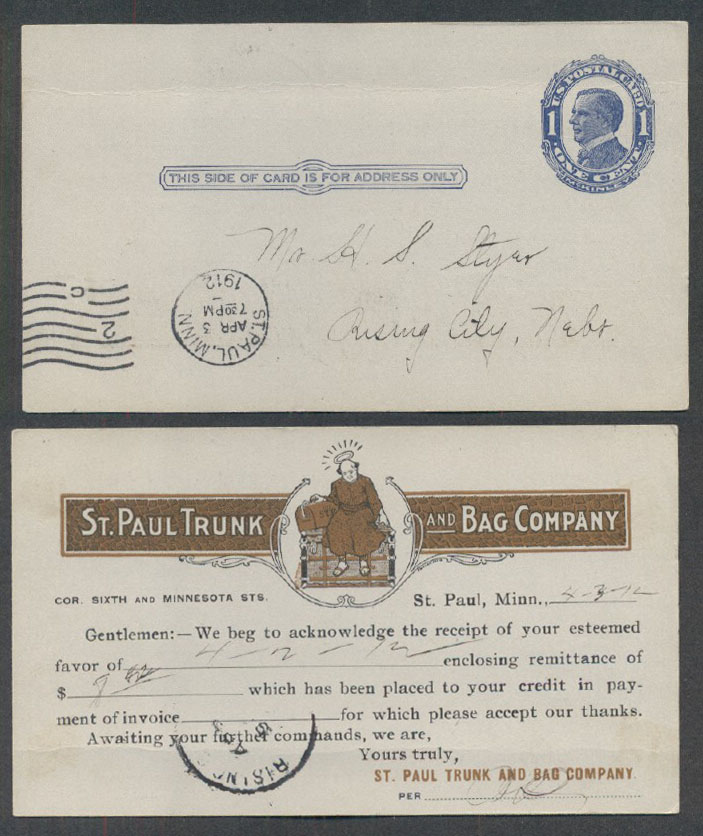 U.S. POSTAL CARD
1 1
ONE CENT
McKINLEY
THIS SIDE OF CARD IS FOR ADDRESS ONLY
Mr H. S. Styer
Rising City, Nebr.
ST. PAUL, MINN.
APR 3
7 30 PM
1912
2
C
ST. PAUL TRUNK AND BAG COMPANY
COR. SIXTH AND MINNESOTA STS.
St. Paul, Minn., 4-3-12
Gentlemen:—We beg to acknowledge the receipt of your esteemed
favor of 4-2-12 enclosing remittance of
$ which has been placed to your credit in pay-
ment of invoice for which please accept our thanks.
Awaiting your further commands, we are,
Yours truly,
ST. PAUL TRUNK AND BAG COMPANY.
PER
RISING